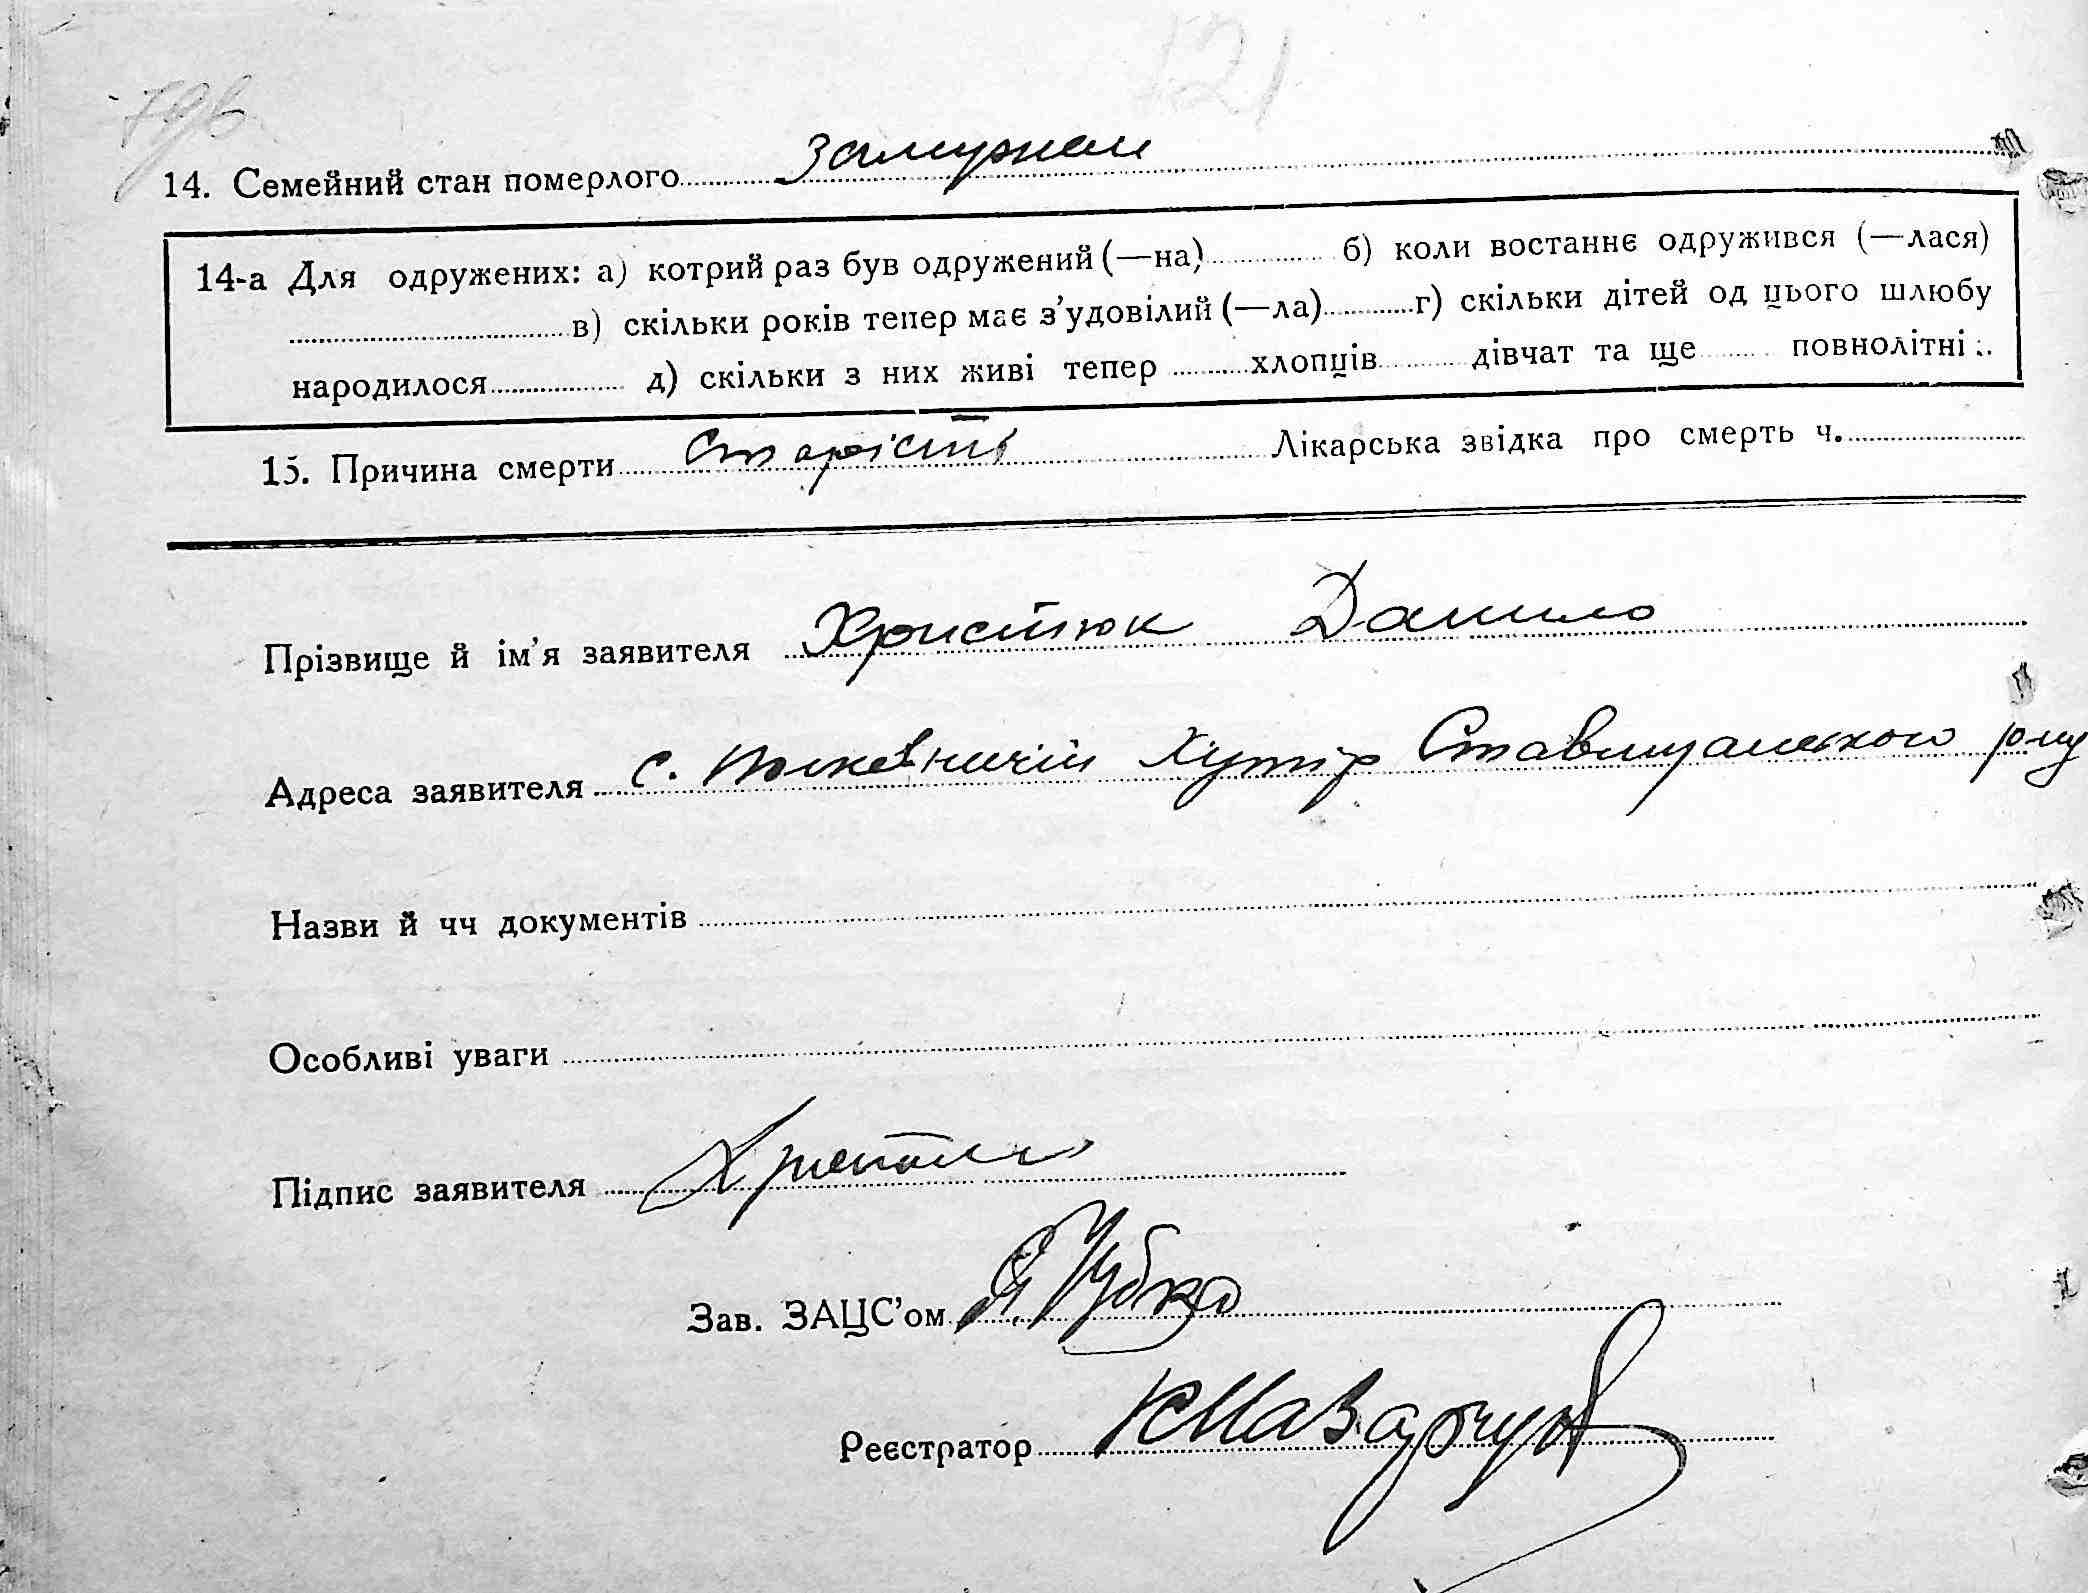 121
79б
14. Семейний стан померлого замужем
14-а Для одружених: а) котрий раз був одружений (—на) б) коли востаннє одружився (—лася)
в) скільки років тепер має з’удовілий (—ла) г) скільки дітей од цього шлюбу
народилося д) скільки з них живі тепер хлопців дівчат та ще повнолітні
15. Причина смерти Старість Лікарська звідка про смерть ч.
Прізвище й ім’я заявителя Христюк Данило
Адреса заявителя с. Полковничій Хутір Ставищанського р-ну
Назви й чч документів
Особливі уваги
Підпис заявителя Христюк
Зав. ЗАЦС’ом Губко
Реєстратор